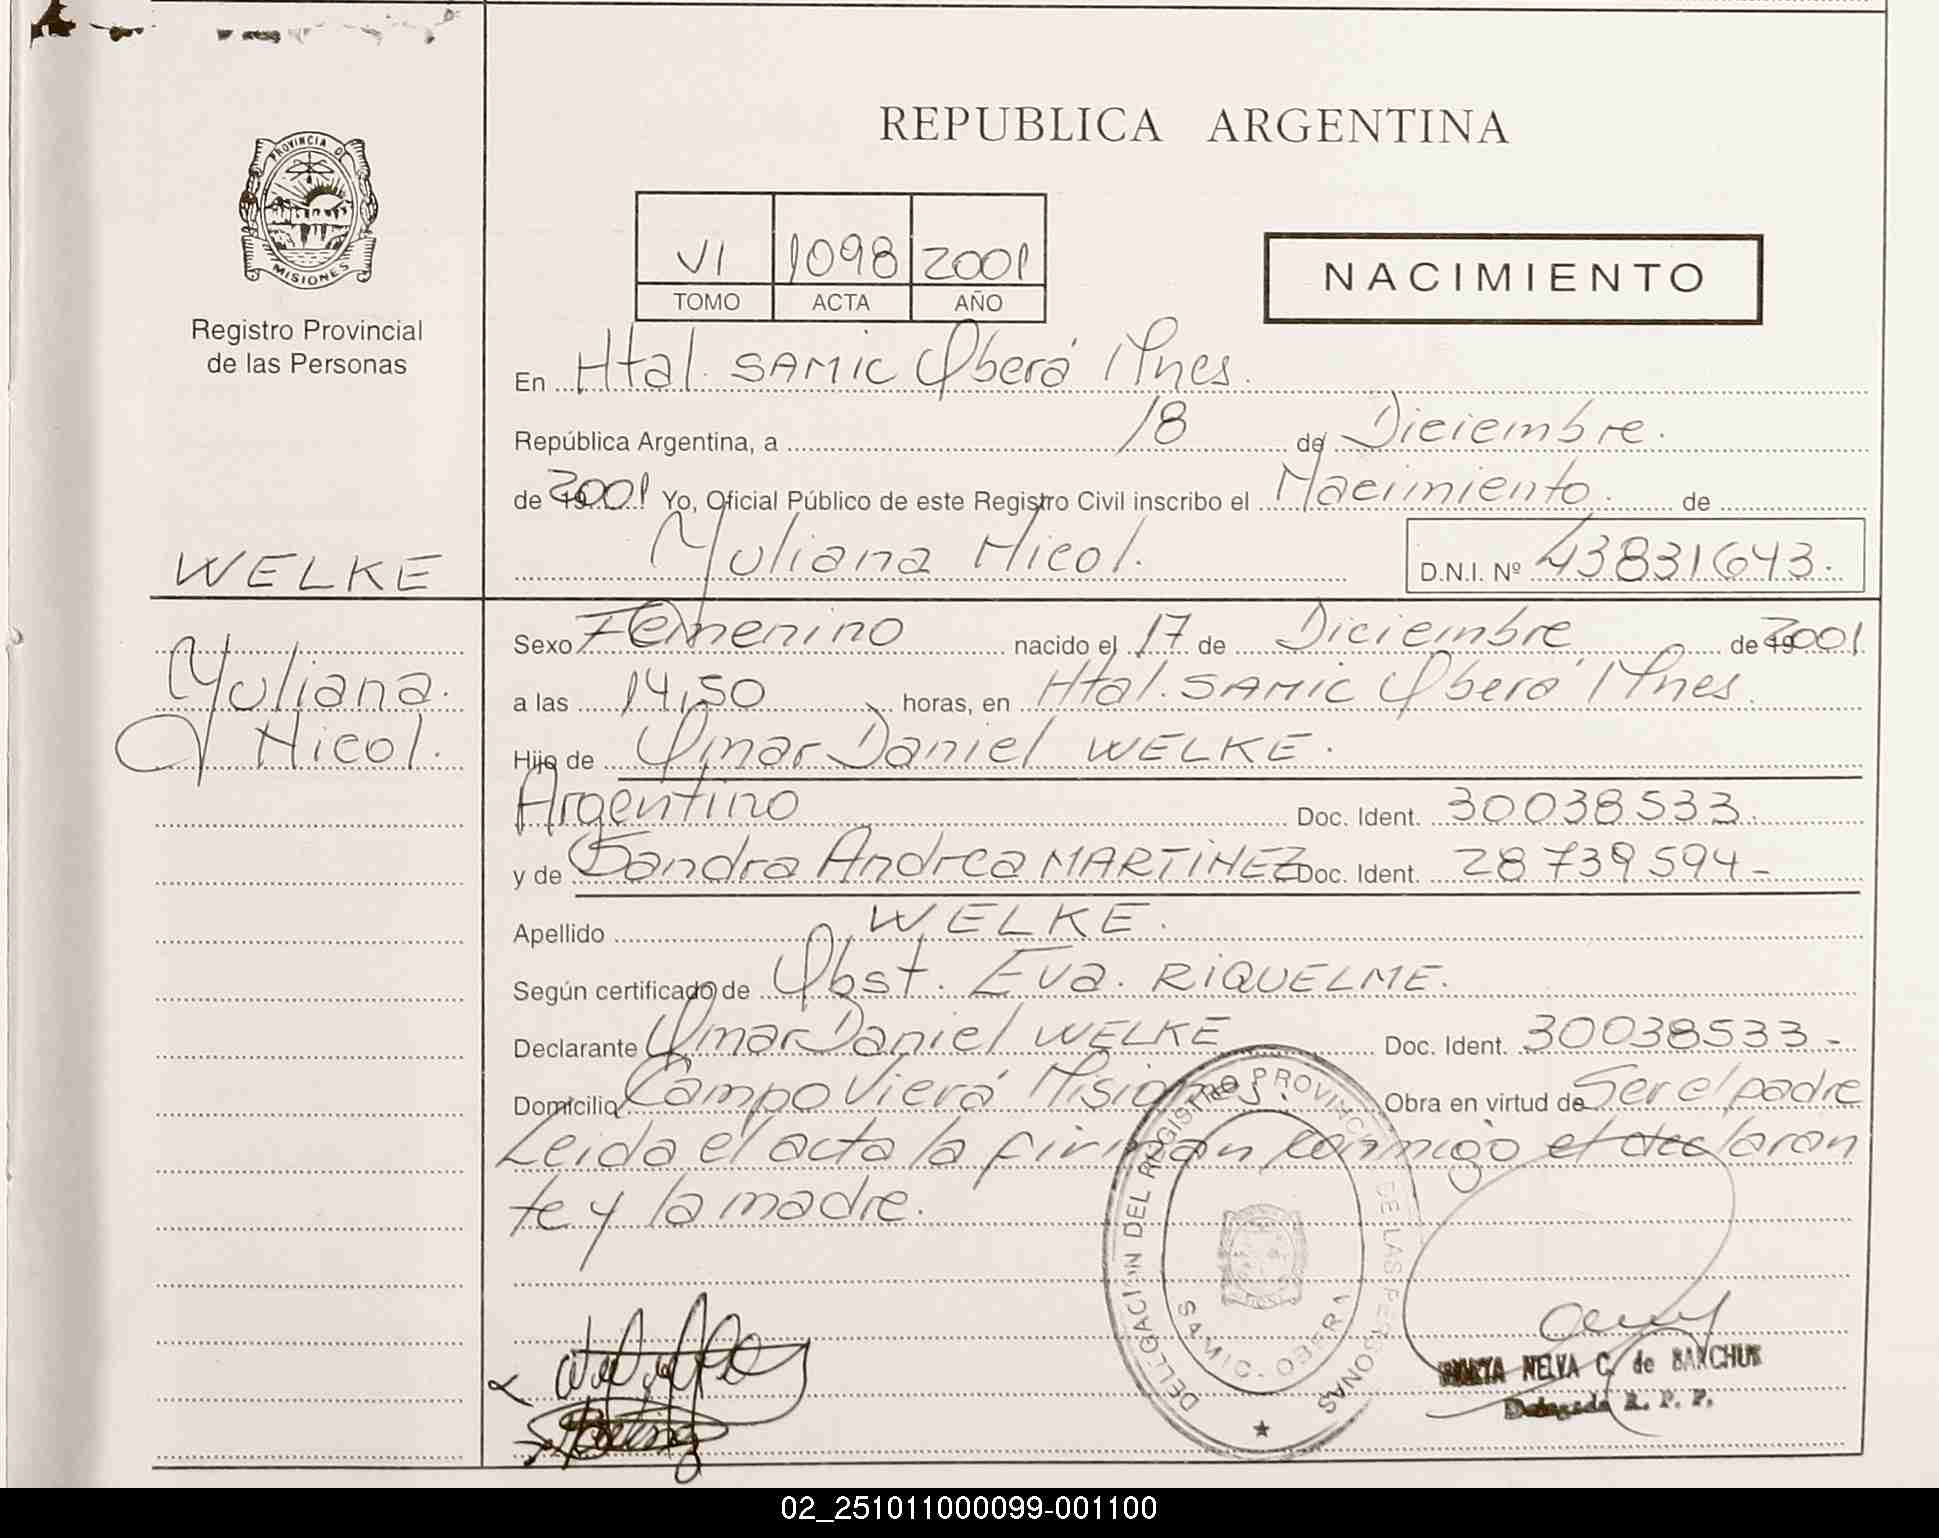 REPUBLICA ARGENTINA
PROVINCIA DE
MISIONES
Registro Provincial
de las Personas
VI 1098 2001
TOMO ACTA AÑO
NACIMIENTO
En Htal. SAMIC Oberá Mnes.
República Argentina, a 18 de Diciembre.
de 2001 Yo, Oficial Público de este Registro Civil inscribo el Nacimiento. de
Yuliana Nicol. D.N.I. Nº 43831643.
WELKE
Yuliana
Nicol.
Sexo Femenino nacido el 17 de Diciembre de 19 2001
a las 14,50 horas, en Htal. SAMIC Oberá Mnes.
Hijo de Omar Daniel WELKE.
Argentino Doc. Ident. 30038533.
y de Sandra Andrea MARTINEZ Doc. Ident. 28739594-
Apellido WELKE.
Según certificado de Obst. Eva. RIQUELME.
Declarante Omar Daniel WELKE Doc. Ident. 30038533-
Domicilio Campo Vierá Misiones. Obra en virtud de Ser el padre
Leida el acta la firman conmigo el declaran
te y la madre.
DELEGACION DEL REGISTRO PROVINCIAL DE LAS PERSONAS
SAMIC - OBERA
NELVA C. de
Delegada R. P. P.
02_251011000099-001100